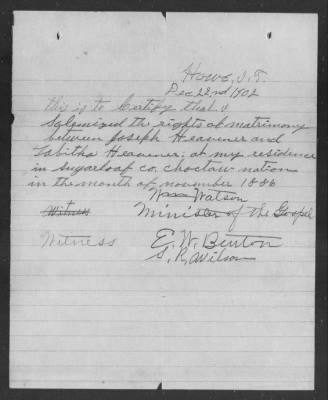 Howe, I.T.
Dec 22nd 1902
this is to Certify that I
Solemized the rights of matrimony
between Joseph Heavener and
Tabitha Heavener; at my residence
in Sugarloaf co. choctaw nation
in the month of november 1886
Watson
Witness Minister of the Gospel
Witness E. W. Benton
S. R. Wilson